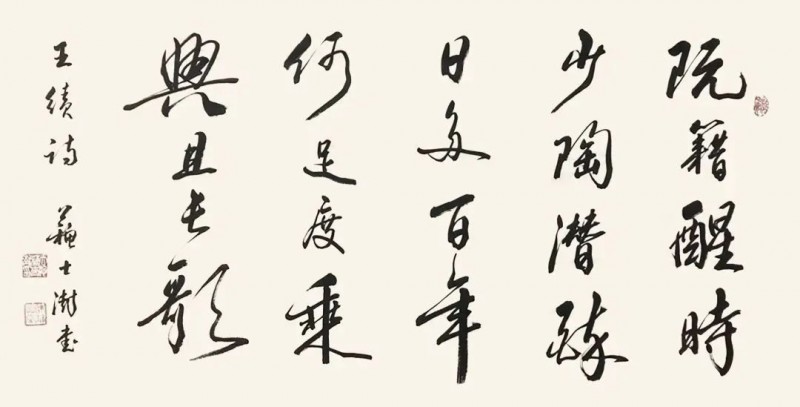 阮籍醒時
少陶潛醉
日多百年
何足度乘
興且長歌
王績詩 蘇士澍書